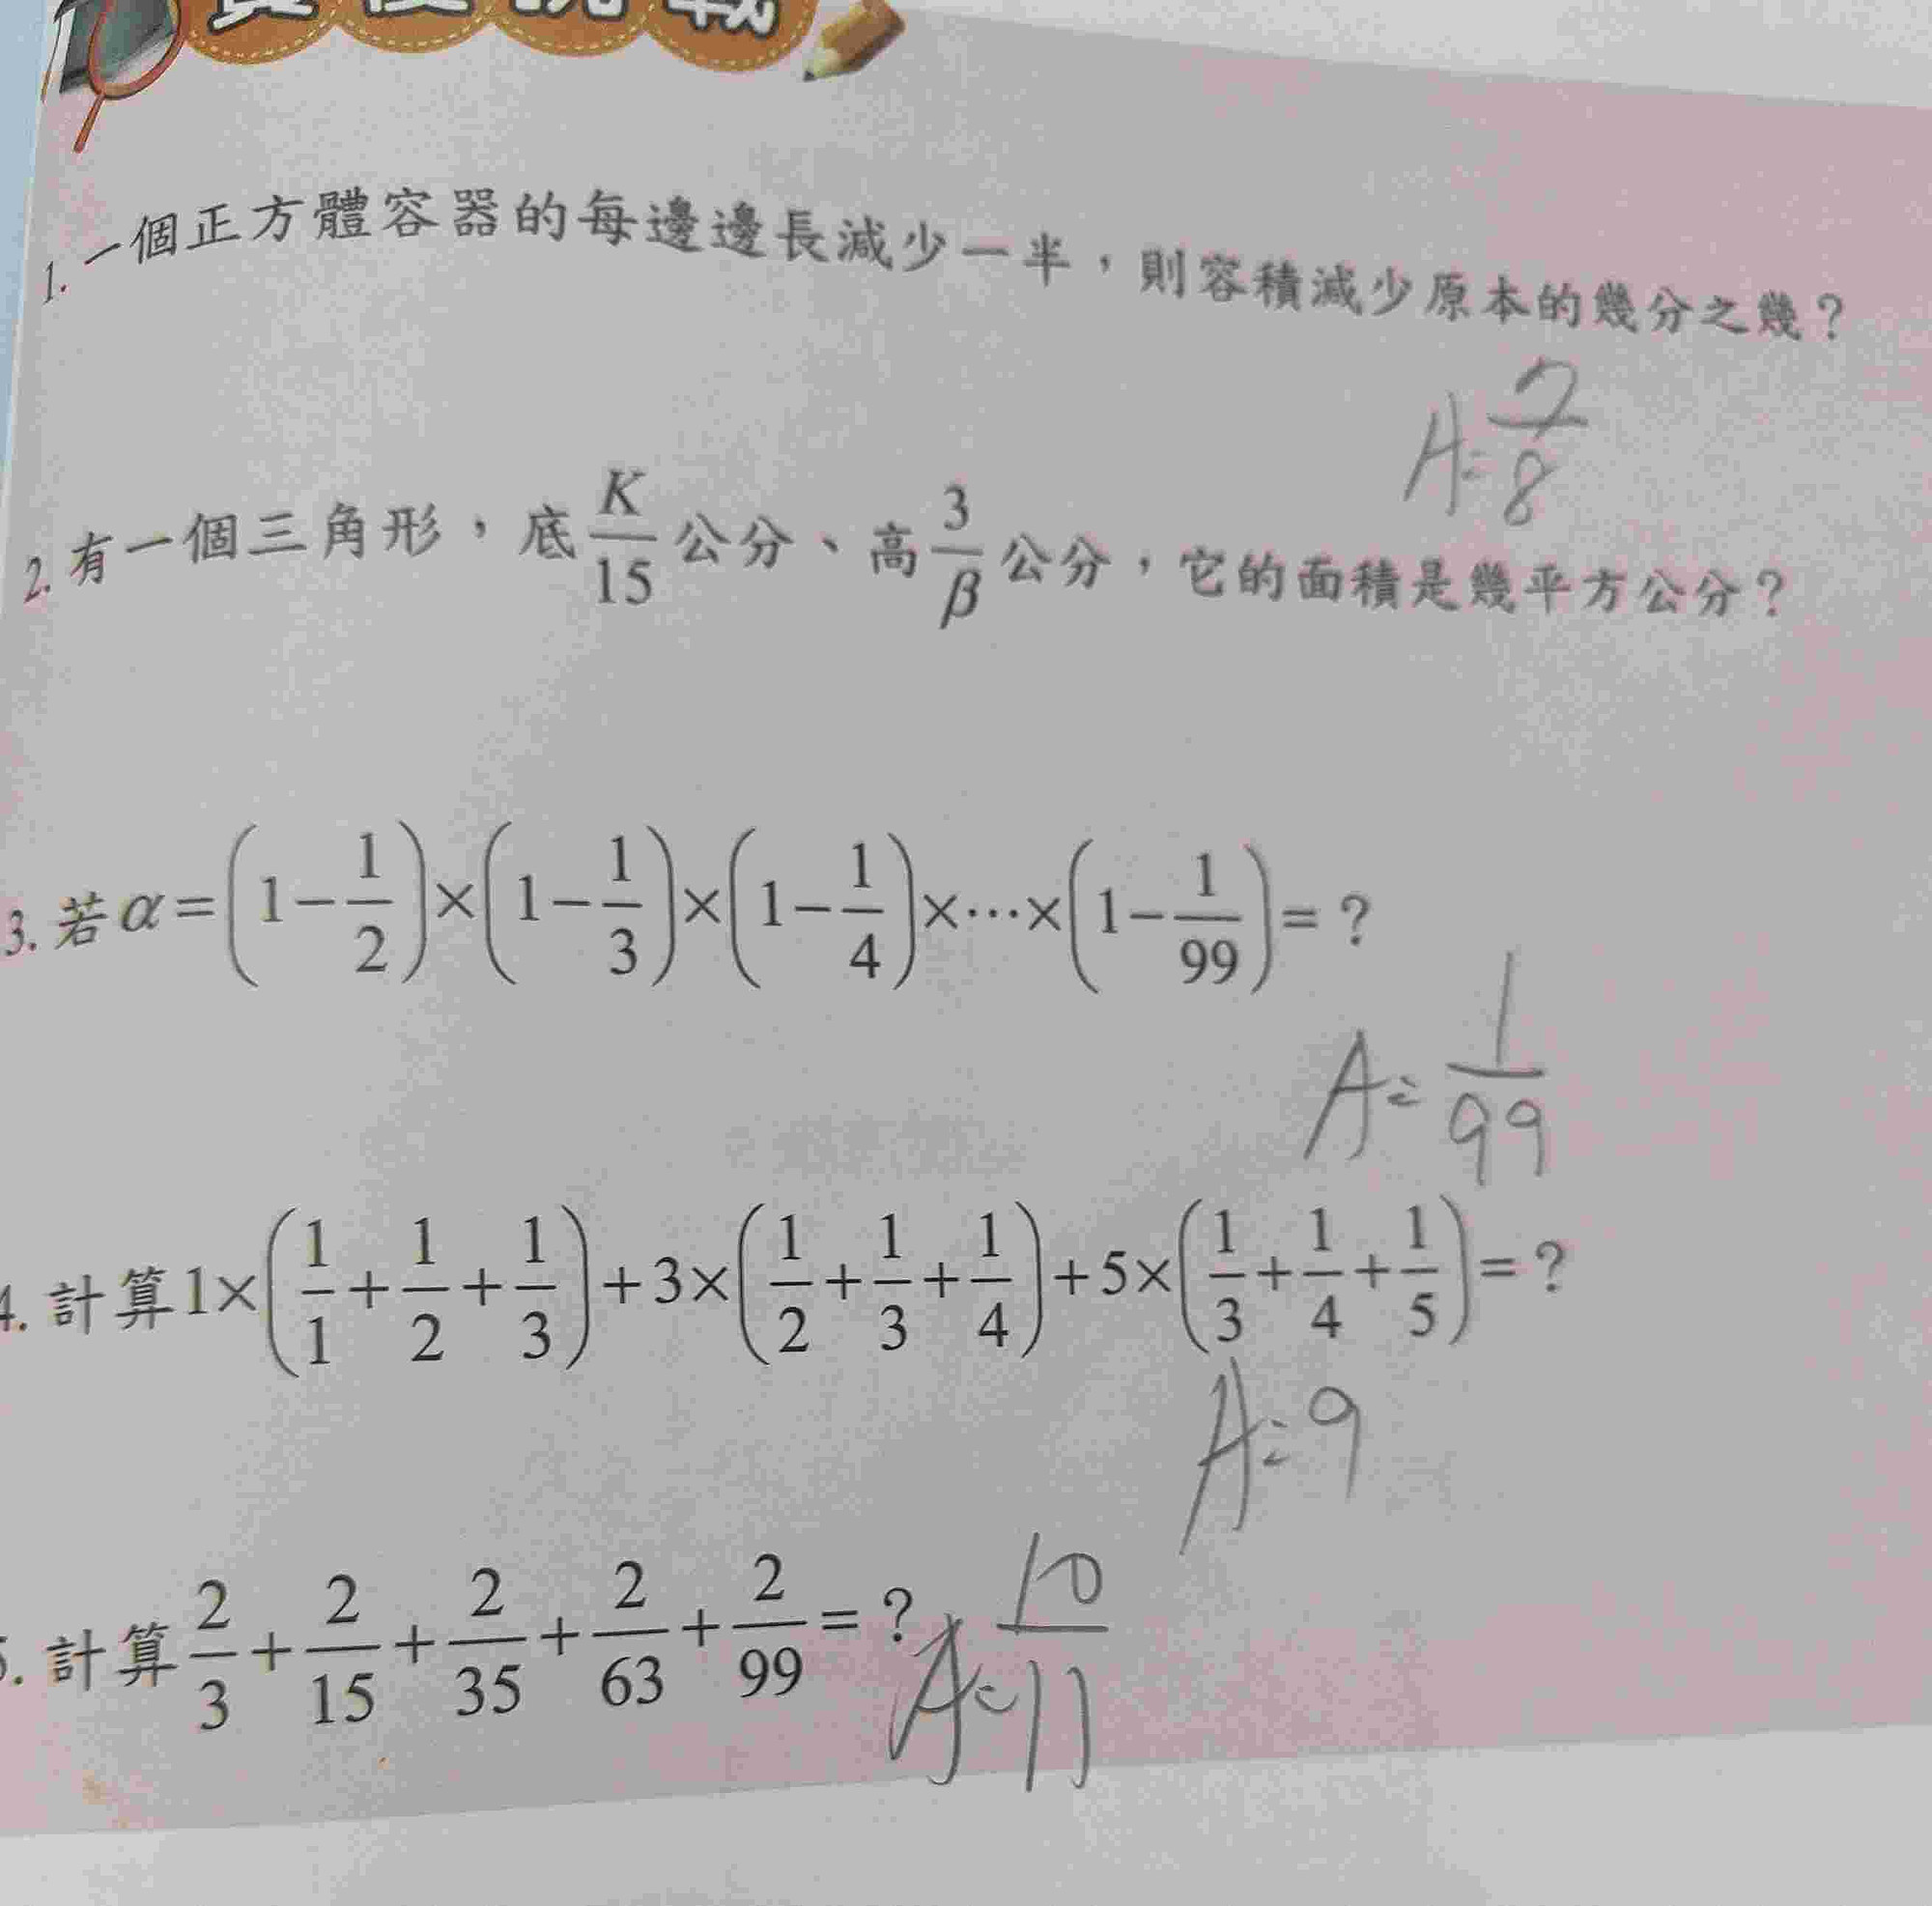 1. 一個正方體容器的每邊邊長減少一半，則容積減少原本的幾分之幾？
A=7/8
2. 有一個三角形，底K/15公分、高3/β公分，它的面積是幾平方公分？
3. 若α=(1-1/2)×(1-1/3)×(1-1/4)×⋯×(1-1/99)=？
A=1/99
4. 計算1×(1/1+1/2+1/3)+3×(1/2+1/3+1/4)+5×(1/3+1/4+1/5)=？
A=9
5. 計算2/3+2/15+2/35+2/63+2/99=？
A=10/11